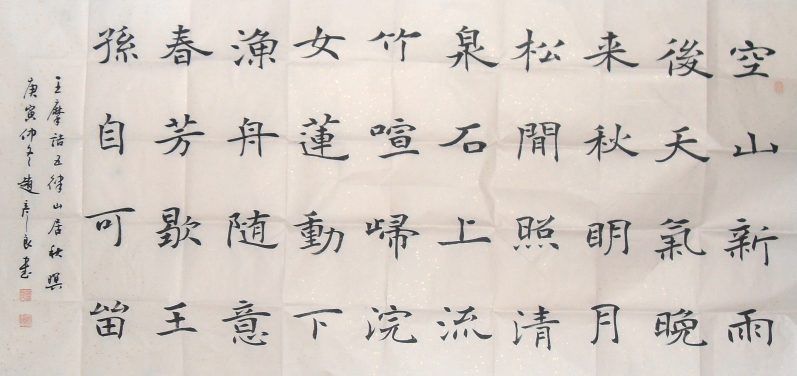 空山新雨
後天氣晚
来秋明月
松閒照清
泉石上流
竹喧歸浣
女蓮動下
漁舟随意
春芳歇王
孫自可留
王摩詰五律山居秋暝
庚寅仲冬趙彦良書